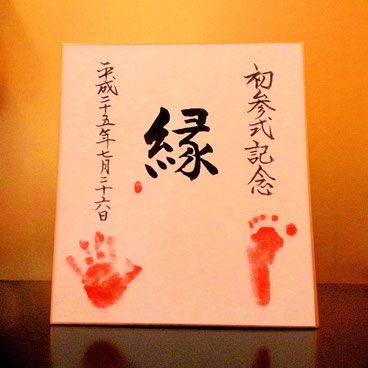 初参式記念
縁
平成二十五年七月二十六日